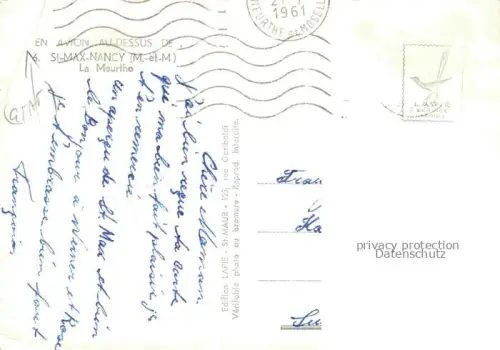 21-
1961
MEURTHE ET MOSELLE
EN AVION AU-DESSUS DE...
6. St-MAX-NANCY (M.-et-M.)
La Meurthe
LAPIE
Chère Maman
J'ai bien reçue ta carte
qui m'a bien fait plaisir, je
t'en remercie
un aperçu de St. Max et bien
le Bonjour à
et Rose
je t'embrasse bien fort
François
Edition LAPIE - St-MAUR - rue Garibaldi
Véritable photo au bromure - Reprod. interdite.
Fran
Ha
privacy protection
Datenschutz
Su